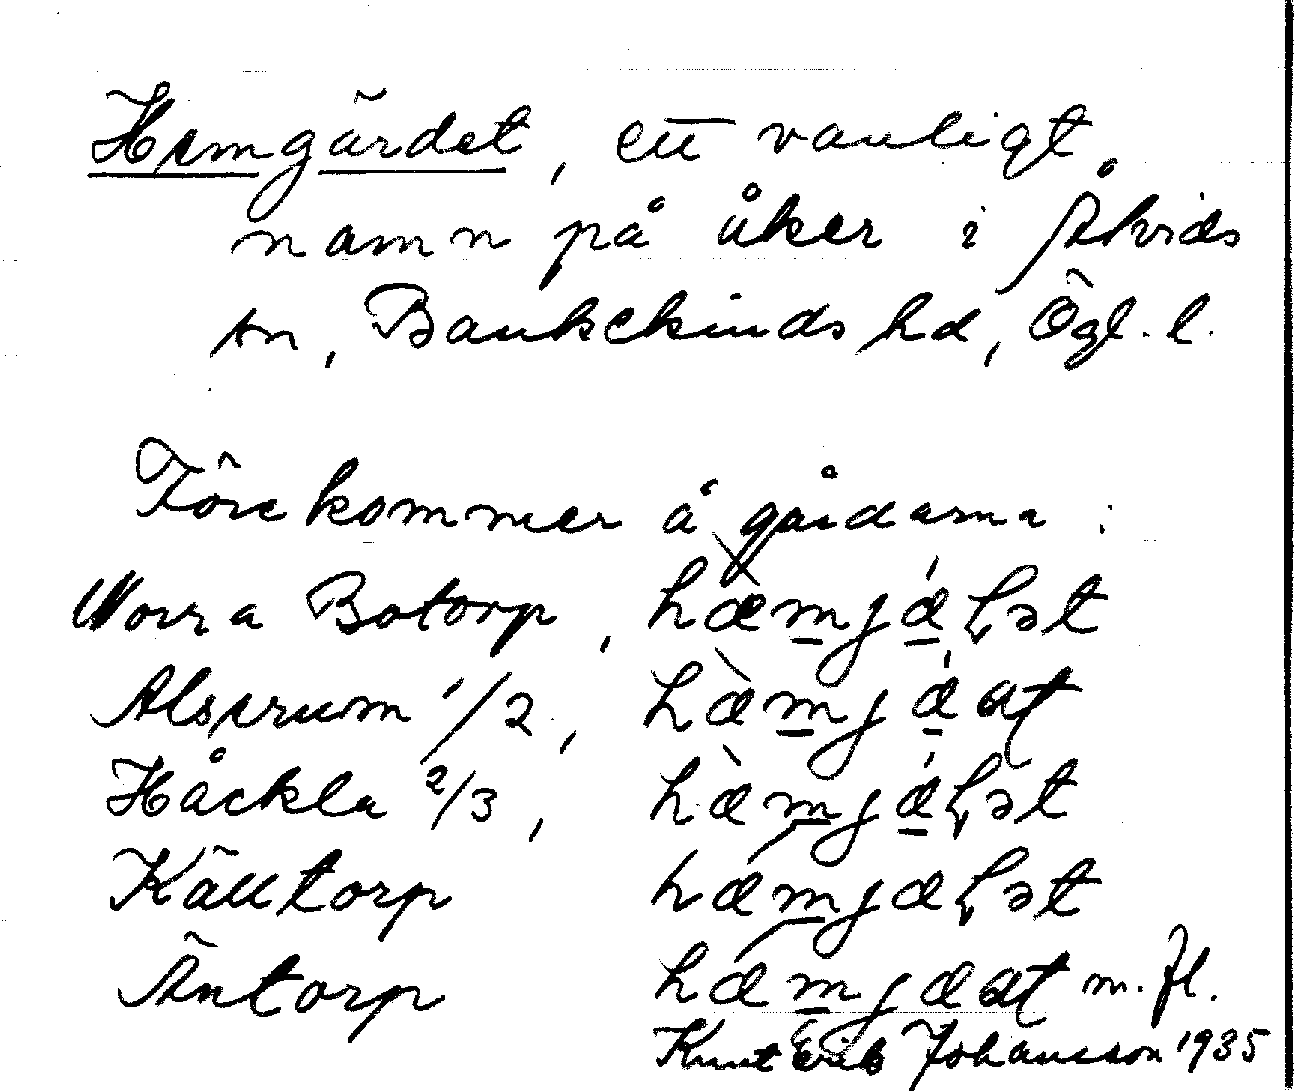 Hemgärdet, ett vanligt
namn på åker i Åtvids
sn, Bankekinds hd, Ögl. l.
Förekommer å gårdarna:
Norra Botorp, hæ̀mjǽɽət
Alserum 1/2, hæ̀mjǽat
Håckla 2/3, hæ̀mjǽɽət
Källtorp hǽmjæɽət
Äntorp hǽmjæat m. fl.
Knut Erik Johansson 1935